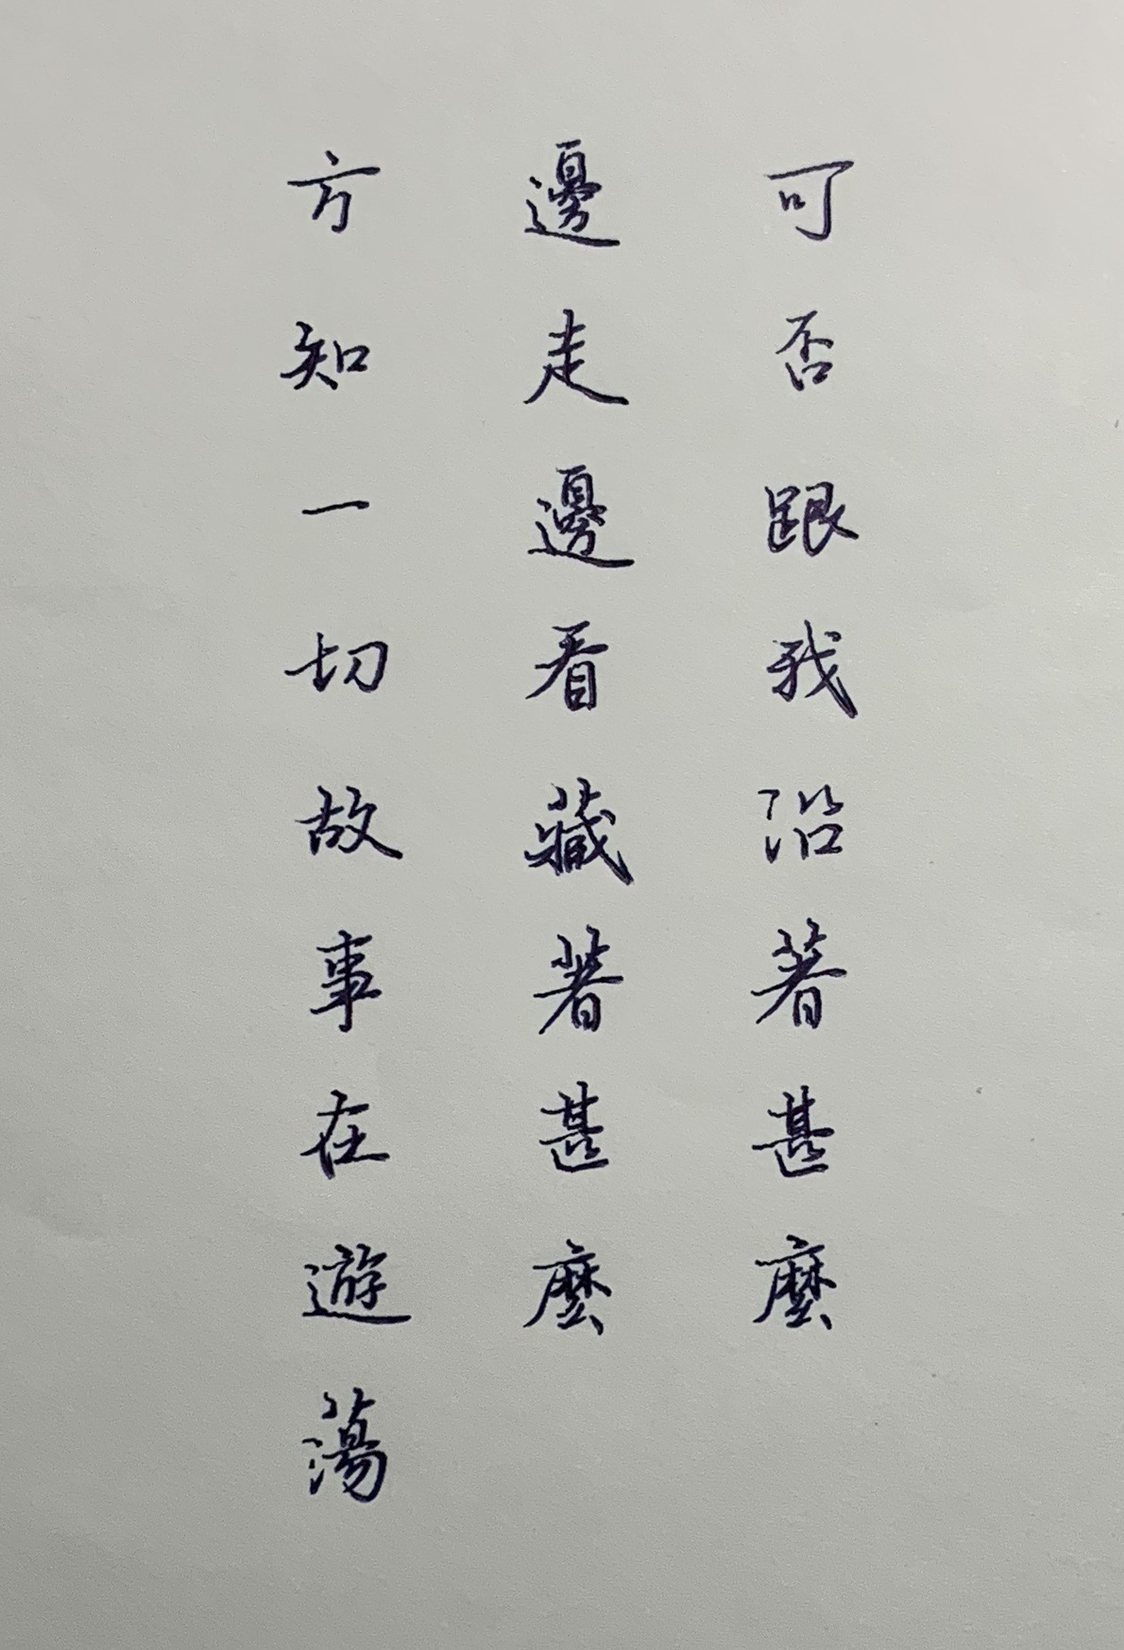 可否跟我沿著甚麼
邊走邊看藏著甚麼
方知一切故事在遊蕩